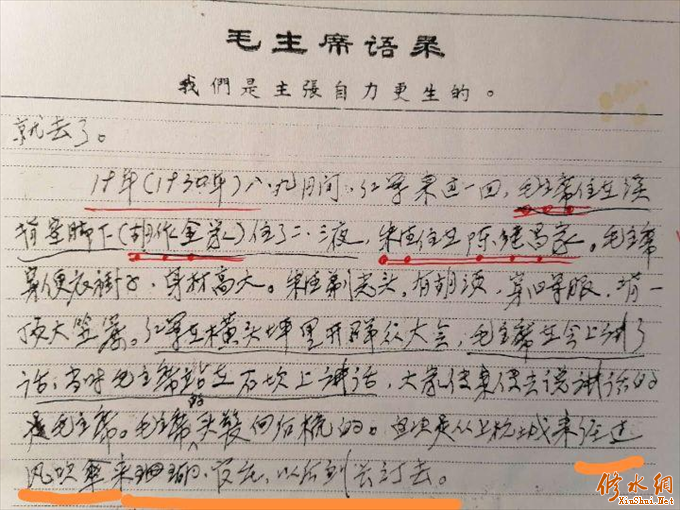 毛主席语录
我們是主張自力更生的。
就去了。
19年(1930年)八、九月间,红军来过一回,毛主席住在
背 脚下(胡作金家)住了二、三夜,朱德住在陈继昌家。毛主席
穿便衣褂子,身材高大。朱德剃光头,有胡须,穿旧军服,背一
顶大笠。红军在横头埠里开群众大会,毛主席在会上讲了
话,当时毛主席站在石坎上讲话,大家传来传去说讲话的
是毛主席。毛主席的头发向后梳的。这次是从上杭城来经过
风吹 来 以后到长 去。
修水網
XiuShui.Net